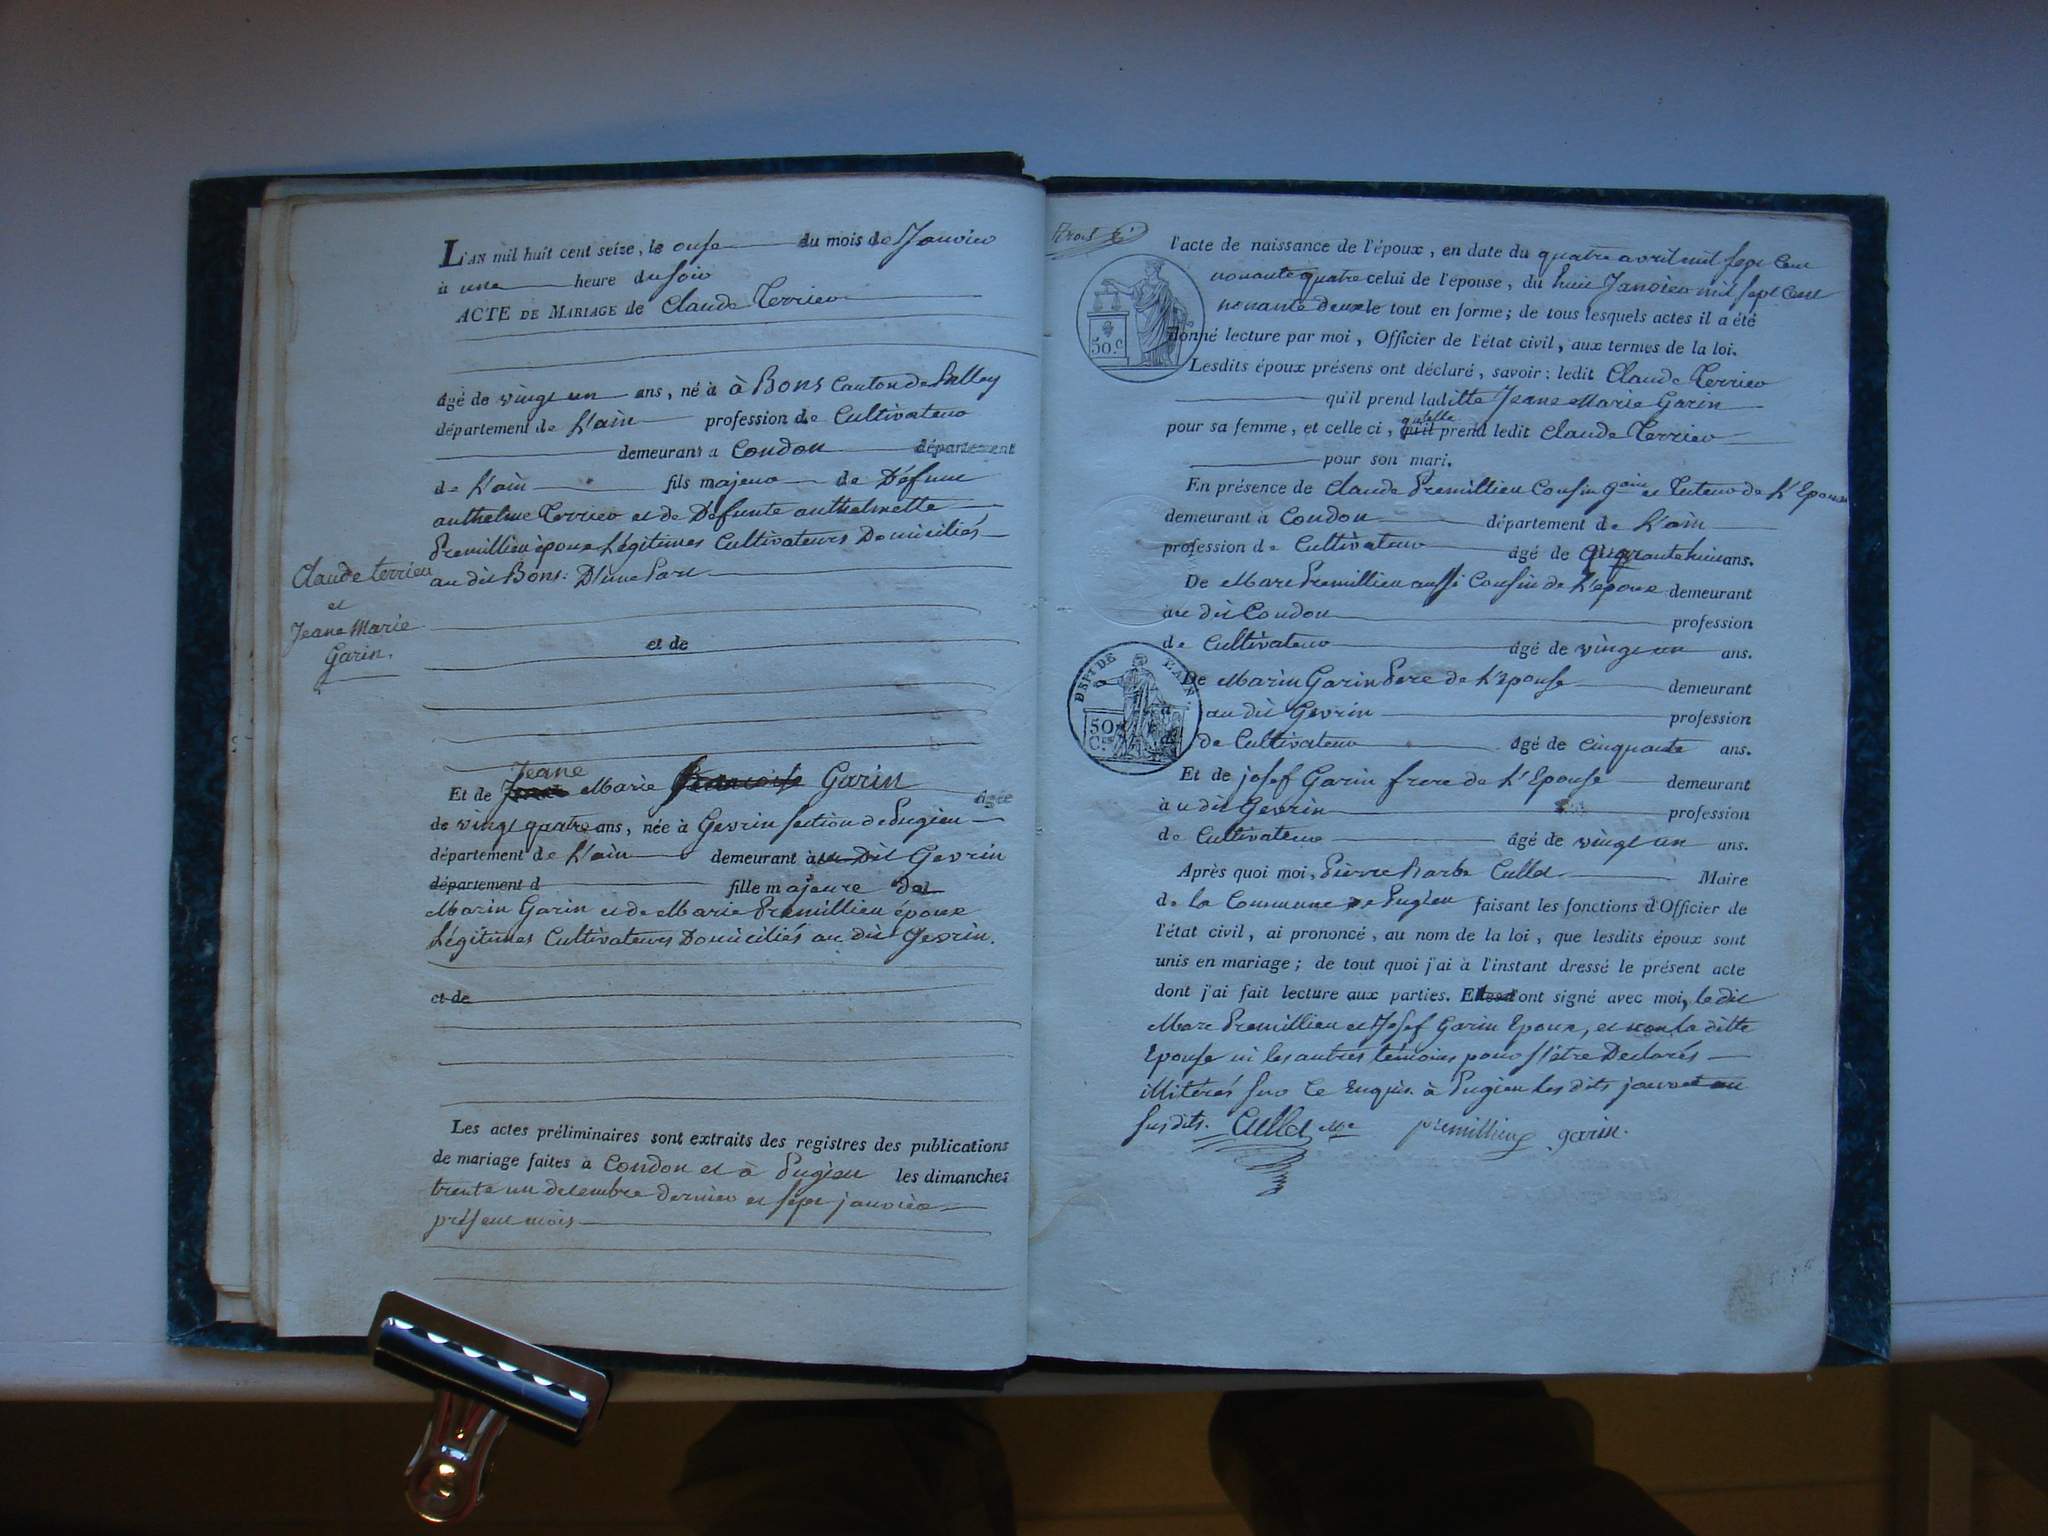 L'AN mil huit cent seize, le onse du mois de Janvier
à une heure du soir
ACTE DE MARIAGE de Claude Terrier
âgé de vingt un ans, né à à Bons Canton de Belley
département de L'ain profession de Cultivateur
demeurant à Condon département
de L'ain fils majeur de Défunt
anthelme Terrier et de Défunte anthelmette
Premillieu époux Légitimes Cultivateurs Domiciliés
au dit Bons: D'une Part
Claude terrier
et
Jeane Marie
Garin.
et de
Jeane
Et de Marie Garin âgée
de vingt quatre ans, née à Gevrin section de Pugieu
département de L'ain demeurant à au Dit Gevrin
département d fille majeure de
Marin Garin et de Marie Premillieu époux
Légitimes Cultivateurs Domiciliés au dit Gevrin.
et de
Les actes préliminaires sont extraits des registres des publications
de mariage faites à Condon et à Pugieu les dimanches
trente un decembre dernier et sept janvier
présent mois
l'acte de naissance de l'époux, en date du quatre avril mil sept Cent
nonante quatre celui de l'épouse, du huit Janvier mil sept Cent
nonante deux le tout en forme; de tous lesquels actes il a été
donné lecture par moi, Officier de l'état civil, aux termes de la loi.
50.c
Lesdits époux présens ont déclaré, savoir: ledit Claude Terrier
qu'il prend laditte Jeane Marie Garin
qu'elle
pour sa femme, et celle ci, qu'il prend ledit Claude Terrier
pour son mari.
En présence de Claude Premillieu Cousin gain et Tuteur de L'Epoux
demeurant à Condon département de L'ain
profession de Cultivateur âgé de quarante huit ans.
De Marc Premillieu aussi Cousin de L'époux demeurant
au dit Condon profession
de Cultivateur âgé de vingt un ans.
DEPT DE L'AIN
50 C.es
De Marin Garin Pere de L'Epouse demeurant
au dit Gevrin profession
de Cultivateur âgé de cinquante ans.
Et de josef Garin frere de L'Epouse demeurant
au dit Gevrin profession
de Cultivateur âgé de vingt un ans.
Après quoi moi, Pierre Barbe Cullet Maire
de la Commune de Pugieu faisant les fonctions d'Officier de
l'état civil, ai prononcé, au nom de la loi, que lesdits époux sont
unis en mariage; de tout quoi j'ai à l'instant dressé le présent acte
dont j'ai fait lecture aux parties. Et ont signé avec moi, le dit
Marc Premillieu et Josef Garin Epoux, et non la ditte
Epouse ni les autres témoins pour s'être Declarés
illitérés sur ce Enquis. à Pugieu les dits jour et an
susdits. Cullet Mre premillieu garin.